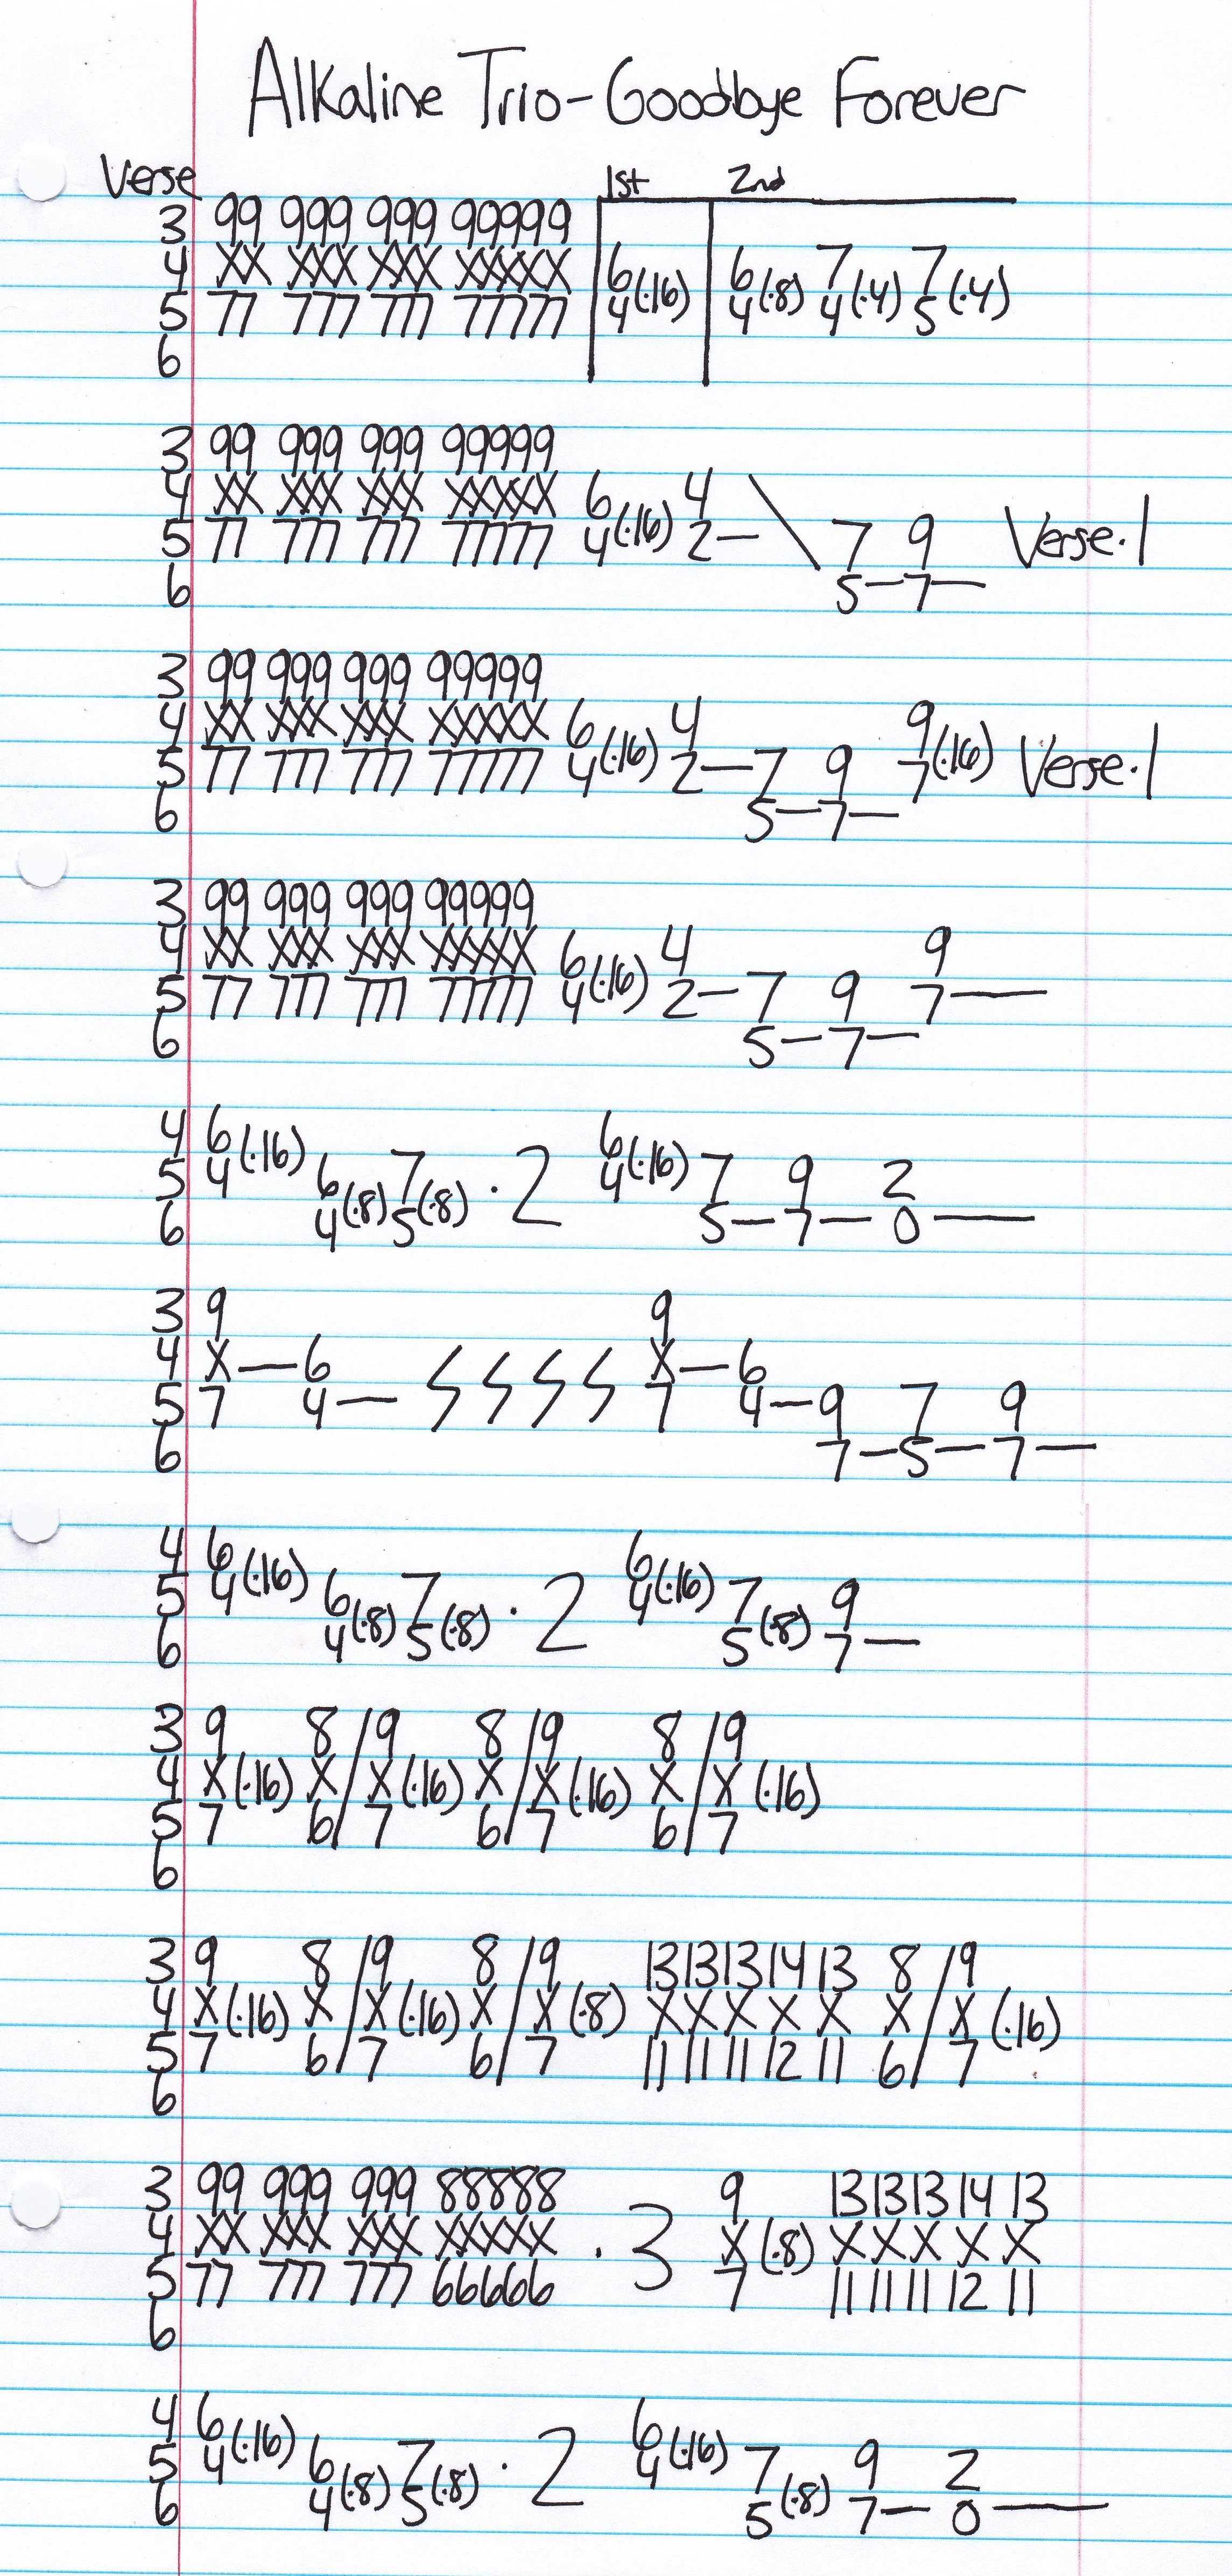 Alkaline Trio-Goodbye Forever
Verse 1st 2nd
3 99 999 999 99999
4 XX XXX XXX XXXXX 6 6 7 7
5 77 777 777 77777 4(·16) 4(·8) 4(·4) 5(·4)
6
3 99 999 999 99999
4 XX XXX XXX XXXXX 6 4 \
5 77 777 777 77777 4(·16) 2— 7 9 Verse·1
6 5—7—
3 99 999 999 99999
4 XX XXX XXX XXXXX 6 4 9
5 77 777 777 77777 4(·16) 2—7 9 7(·16) Verse·1
6 5—7—
3 99 999 999 99999
4 XX XXX XXX XXXXX 6 4 9
5 77 777 777 77777 4(·16) 2—7 9 7—
6 5—7—
4 6 6
5 4(·16) 6 7 ·2 4(·16) 7 9 2
6 4(·8) 5(·8) 5—7—0—
3 9 9
4 X—6 X—6
5 7 4— 7 4—9 7 9
6 7—5—7—
4 6 6
5 4(·16) 6 7 ·2 4(·16) 7 9
6 4(·8) 5(·8) 5(·8) 7—
3 9 8/9 8/9 8/9
4 X(·16) X/X(·16) X/X(·16) X/X(·16)
5 7 6/7 6/7 6/7
6
3 9 8/9 8/9 13 13 13 14 13 8/9
4 X(·16) X/X(·16) X/X(·8) X X X X X X/X(·16)
5 7 6/7 6/7 11 11 11 12 11 6/7
6
3 99 999 999 88888 9 13 13 13 14 13
4 XX XXX XXX XXXXX ·3 X(·8) X X X X X
5 77 777 777 66666 7 11 11 11 12 11
6
4 6 6
5 4(·16) 6 7 ·2 4(·16) 7 9 2
6 4(·8) 5(·8) 5(·8) 7—0—